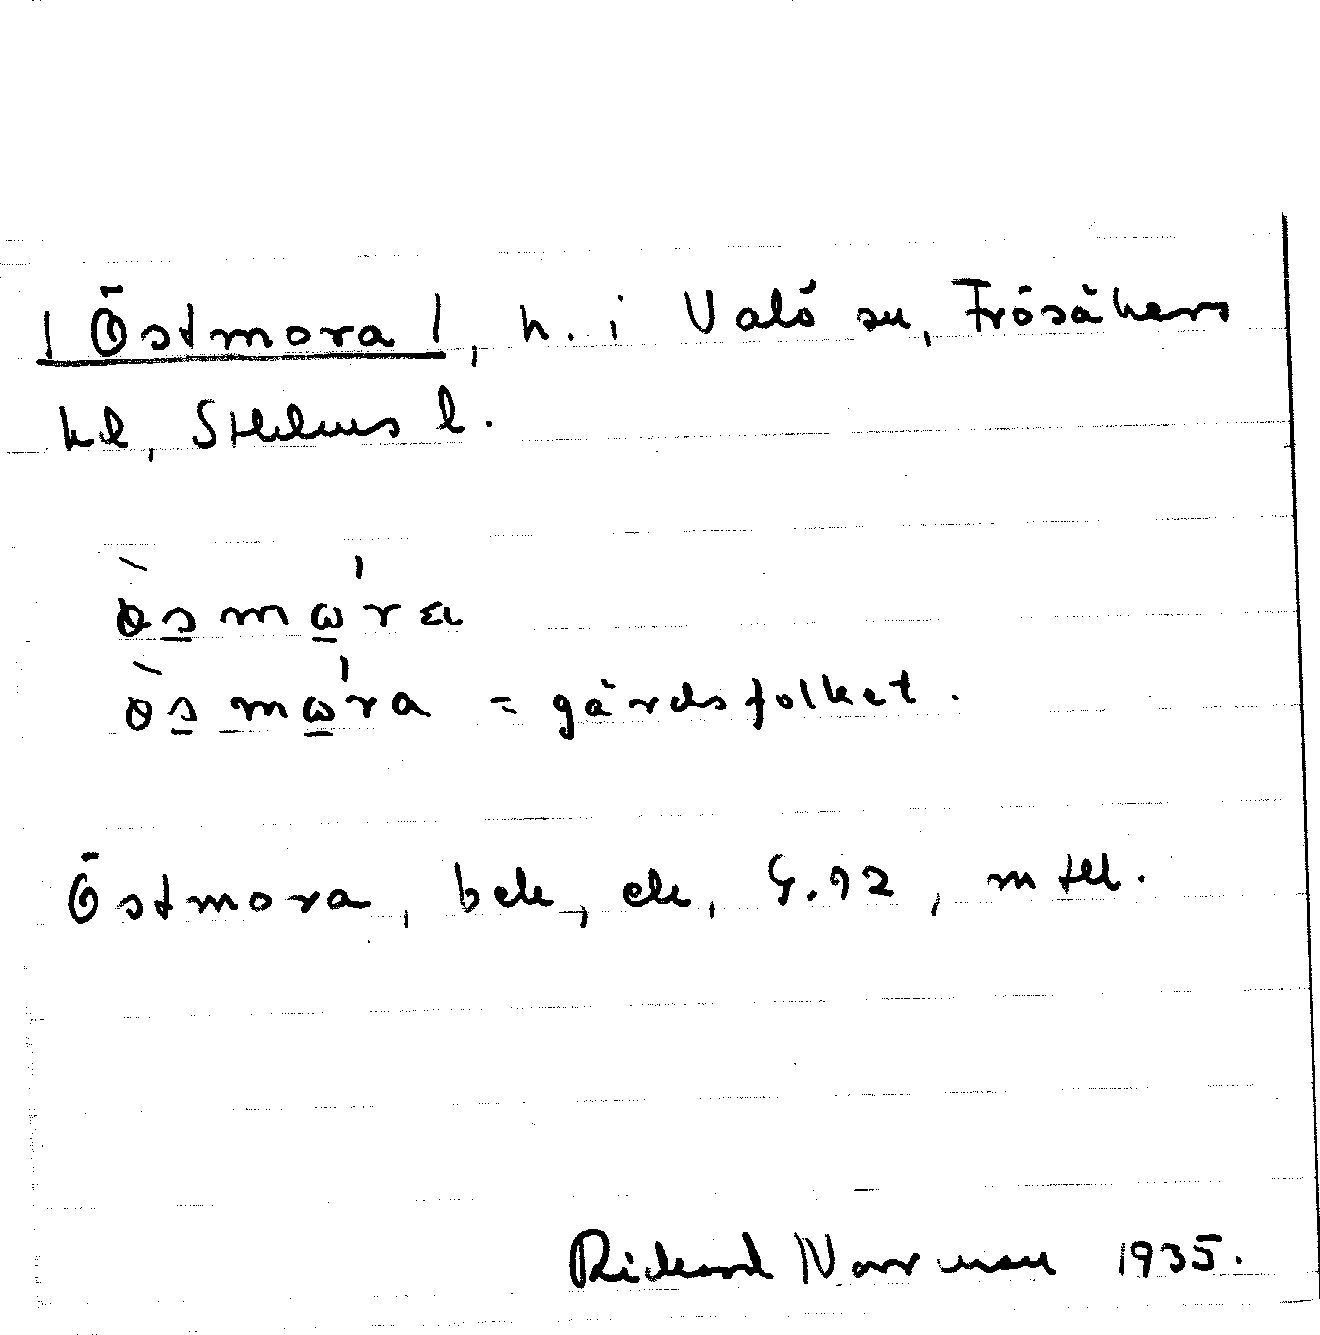 | Östmora |, h. i Valö sn, Frösåkers
hd, Sthlms l.
ɵ̀smω̍ra
ɵ̀smω̍ra = gårdsfolket.
Östmora, bek, ek, G. 92, mtl.
Rickard Norrman 1935.